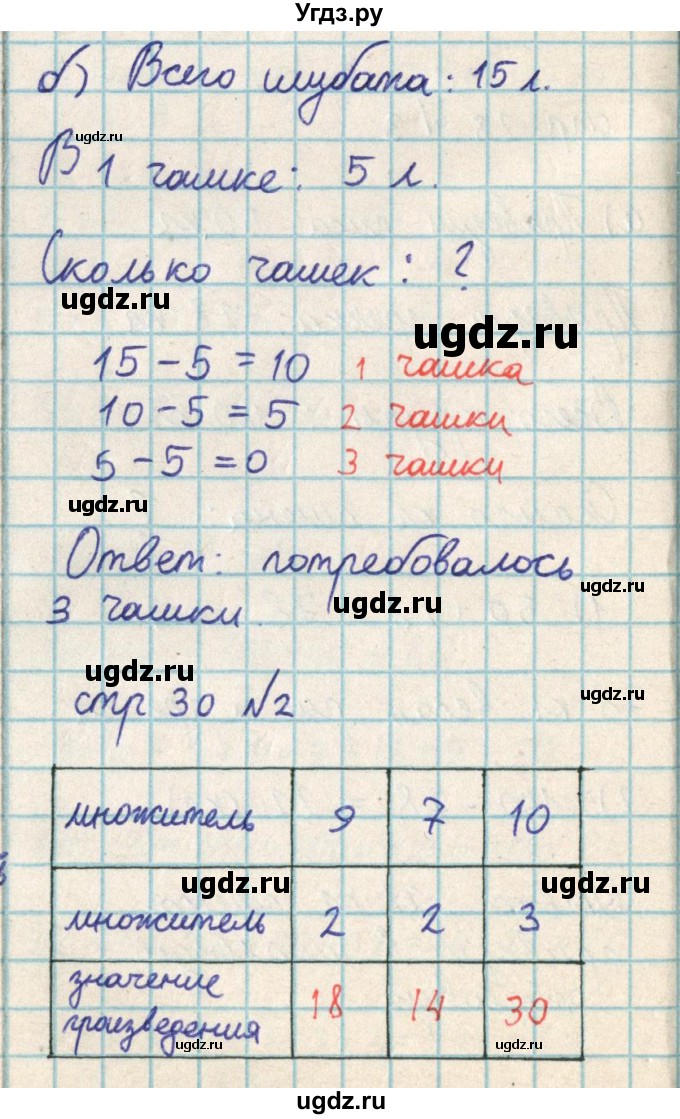 Угдз.ру
б) Всего шубата: 15 л.
ugdz.ru
В 1 чашке: 5 л.
Сколько чашек: ?
ugdz.ru
ugdz.ru
15 - 5 = 10 1 чашка
10 - 5 = 5 2 чашки
5 - 5 = 0 3 чашки
ugdz.ru
Ответ: потребовалось
ugdz.ru
3 чашки.
ugdz.ru
ugdz.ru
стр 30 №2
ugdz.ru
множитель 9 7 10
ugdz.ru
ugdz.ru
множитель 2 2 3
значение
произведения 18 14 30
ugdz.ru
ugdz.ru
ugdz.ru